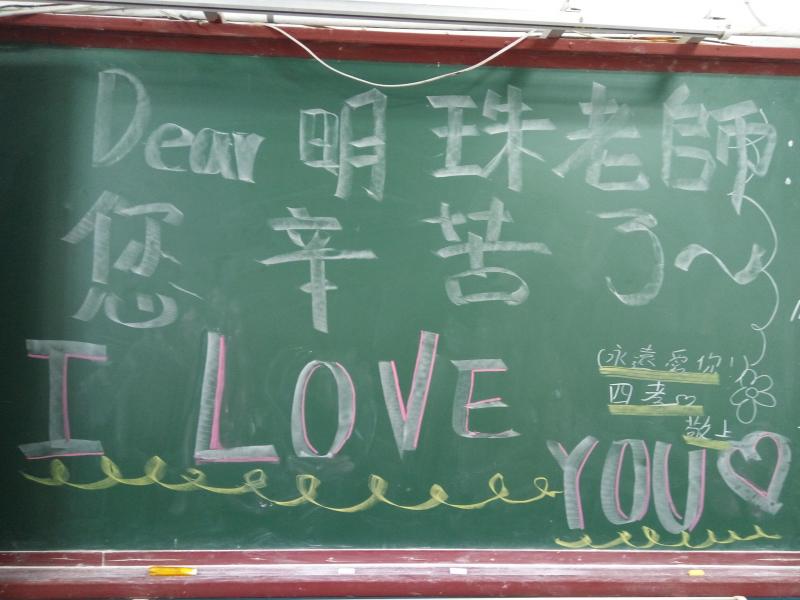 Dear 明珠老師
您辛苦了~
I LOVE
(永遠愛你!)
四孝♡
敬上
YOU♡